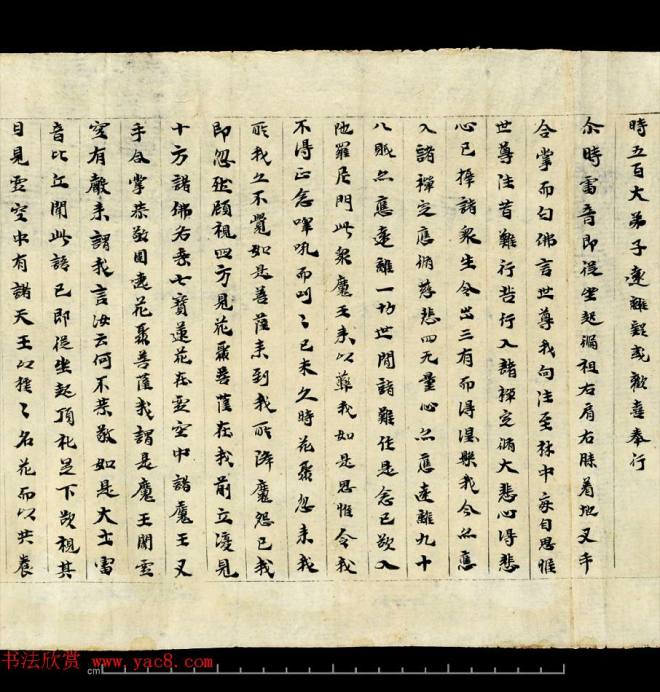 時五百大弟子遠離疑或歡喜奉行
尒時雷音即從坐起徧袒右肩右膝着地叉手
合掌而白佛言世尊我向往至林中每自思惟
世尊往昔難行苦行入諸禪定脩大悲心得悲
心已擇諸衆生令出三有而得涅槃我今亦應
入諸禪定應脩慈悲四无量心亦應遠離九十
八眠亦應遠離一切世間諸難作是念已欲入
陁羅尼門此衆魔王來以難我如是思惟令我
不得正念嘷吼而叫〻已未久時花聚忽來我
所我之不覺如是菩薩來到我所降魔怨已我
即忽然顧視四方見花聚菩薩在我前立復見
十方諸佛各乘七寶蓮花在虛空中諸魔王叉
手合掌恭敬圍遶花聚菩薩我謂是魔王聞虛
空有聲來謂我言汝云何不恭敬如是大士雷
音比丘聞此語已即從坐起頂礼足下欲視其
目見虛空中有諸天王以種〻名花而以共養
书法欣赏 www.yac8.com
cm